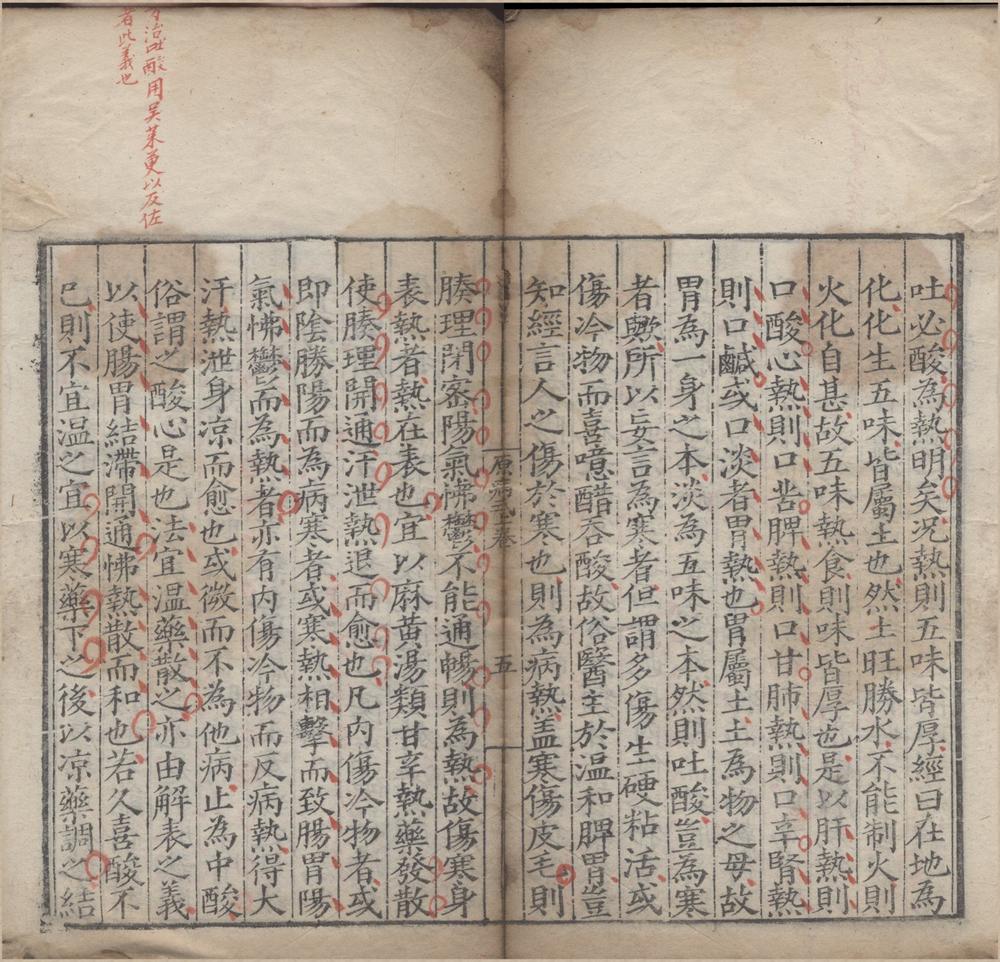 吐必酸為熱明矣况熱則五味皆厚經曰在地為
化化生五味皆屬土也然土旺勝水不能制火則
火化自甚故五味熱食則味皆厚也是以肝熱則
口酸心熱則口苦脾熱則口甘肺熱則口辛腎熱
則口鹹或口淡者胃熱也胃屬土土為物之母故
胃為一身之本淡為五味之本然則吐酸豈為寒
者歟所以妄言為寒者但謂多傷生硬粘活或
傷冷物而喜噫醋吞酸故俗醫主於温和脾胃豈
知經言人之傷於寒也則為病熱盖寒傷皮毛則
原病式上卷 五
腠理閉密陽氣怫鬱不能通暢則為熱故傷寒身
表熱者熱在表也宜以麻黄湯類甘辛熱藥發散
使腠理開通汗泄熱退而愈也凡内傷冷物者或
即陰勝陽而為病寒者或寒熱相擊而致腸胃陽
氣怫鬱而為熱者亦有内傷冷物而反病熱得大
汗熱泄身凉而愈也或微而不為他病止為中酸
俗謂之酸心是也法宜温藥散之亦由解表之義
以使腸胃結滯開通怫熱散而和也若久喜酸不
已則不宜温之宜以寒藥下之後以凉藥調之結
方治吐酸用吳茱更以反佐
者此義也